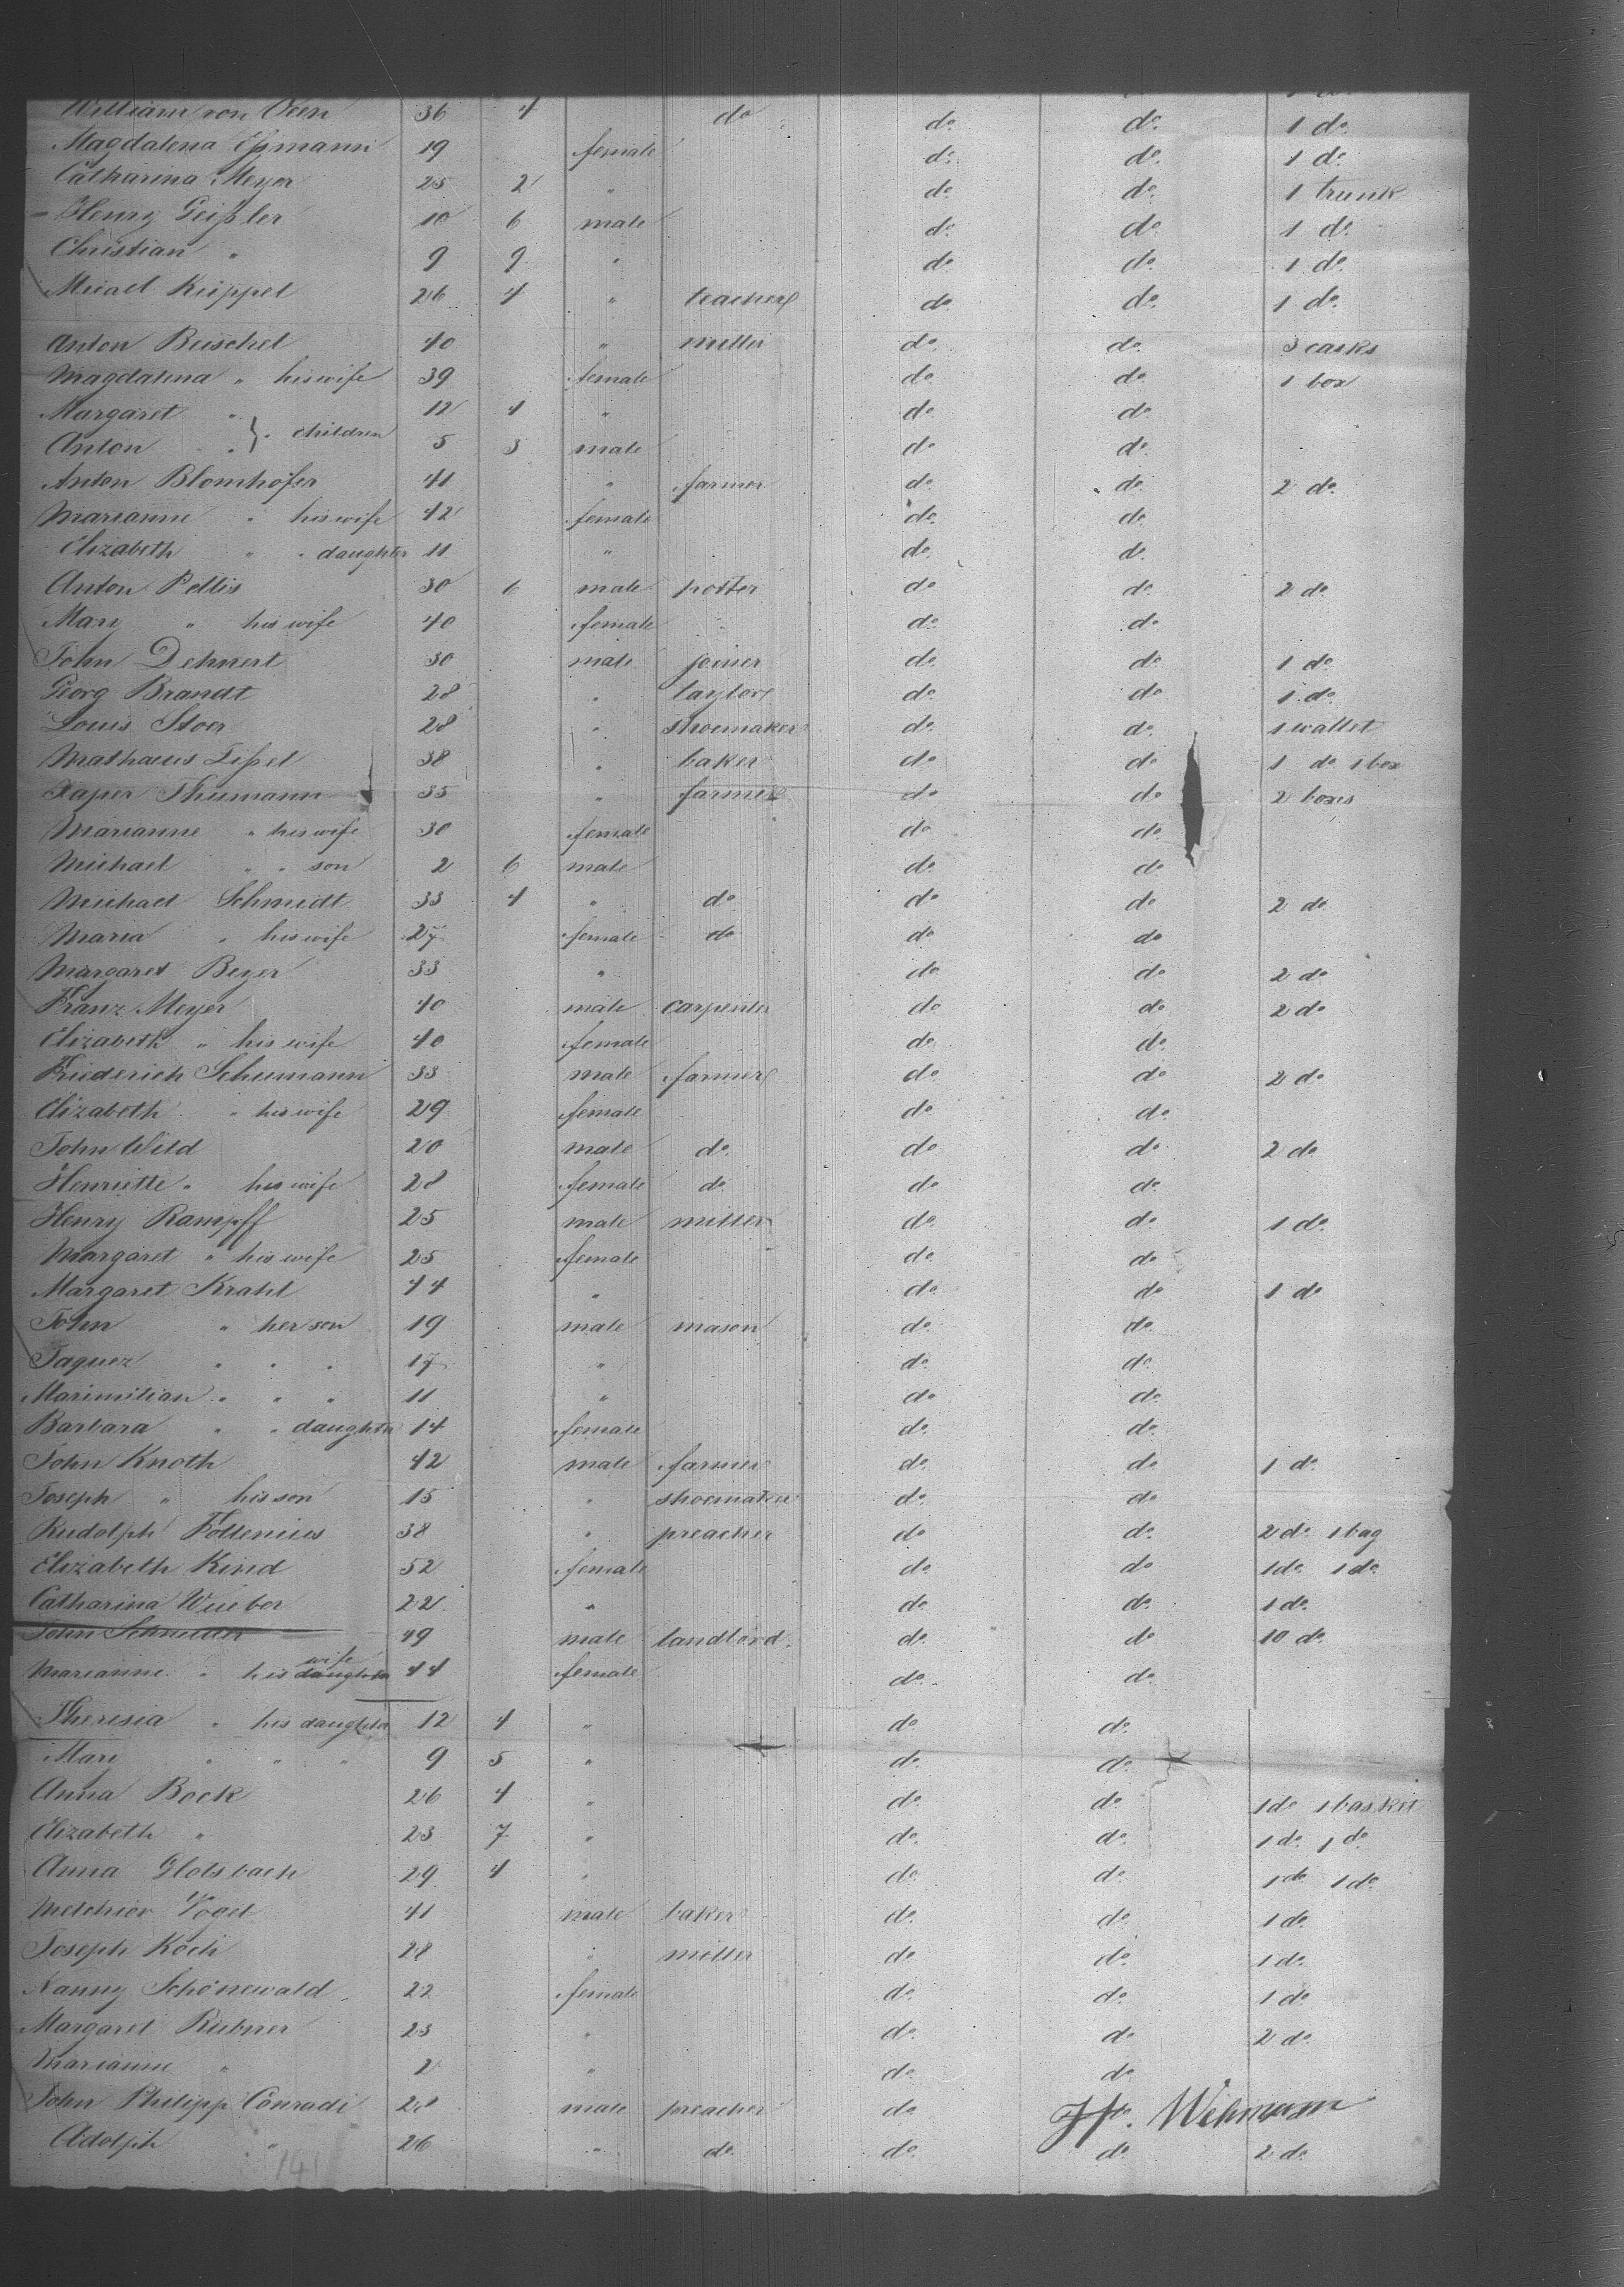 William von Oven 36 4 do do. do. 1 do.
Magdalena Eßmann 19 female do. do. 1 do.
Catharina Meyer 25 2 " do. do. 1 trunk
Henry Geißler 10 6 male do. do. 1 do.
Christian " 9 9 " do. do. 1 do.
Micael Küppel 26 4 " teacher do. do. 1 do.
Anton Beischel 40 " miller do. do. 3 casks
Magdalena " his wife 39 female do. do. 1 box
Margaret " 12 4 " do. do.
Anton " } " children 5 3 male do. do.
Anton Blomhöfer 41 " farmer do. do. 2 do.
Marianne " his wife 42 female do. do.
Elizabeth " " daughter 11 " do. do.
Anton Pellis 30 6 male potter do. do. 2 do.
Mary " his wife 40 female do. do.
John Dehnert 30 male joiner do. do. 1 do.
Georg Brandt 28 " taylor do. do. 1 do.
Louis Stoer 28 " shoemaker do. do. 1 wallet
Mathaeus Lißel 38 " baker do do 1 do 1 box
Xaper Thumann 35 " farmer do do 2 boxes
Marianne " his wife 30 female do. do.
Michael " " son 2 6 male do. do
Michael Schmidt 33 4 " do do do 2 do
Maria " his wife 27 female do do do
Margaret Beyer 33 " do do 2 do
Franz Meyer 40 male carpenter do do 2 do
Elizabeth " his wife 40 female do. do.
Friederich Schumann 33 male farmer do. do 2 do
Elizabeth " his wife 29 female do do.
John Wild 20 male do. do do 2 do
Henriette " his wife 28 female do do do.
Henry Rampff 25 male miller do. do. 1 do.
Margaret " his wife 25 female do. do
Margaret Krahl 44 " do. do 1 do
John " her son 19 male mason do. do.
Jaquez " " " 17 " do. do.
Maximilian " " " 11 " do do.
Barbara " " daughter 14 female do. do.
John Knoth 42 male farmer do. do. 1 do.
Joseph " his son 15 " shoemaker do. do
Rudolph Follenius 38 " preacher do do. 2 do. 1 bag
Elizabeth Kind 52 female do. do 1 do. 1 do.
Catharina Weber 22 " do. do. 1 do.
John 49 male landlord. do. do 10 do.
wife
Marianne " his daughter 44 female do. do.
Theresia " his daughter 12 4 " do. do.
Mary " " " 9 5 " do. do.
Anna Bock 26 4 " do. do. 1 do 1 basket
Elizabeth " 23 7 " do. do. 1 do. 1 do
Anna Glotsbach 29 4 " do. do. 1 do 1 do.
Melchior Vogel 41 male baker do. do. 1 do.
Joseph Koch 28 " miller do do. 1 do.
Nanny Schönewald 22 female do. do. 1 do.
Margaret Rubner 23 " do. do 2 do.
Marianne " 2 " do. do
John Philipp Conradi 28 male preacher do Wehmann
Adolph " 26 " do. do. do. 2 do.
141